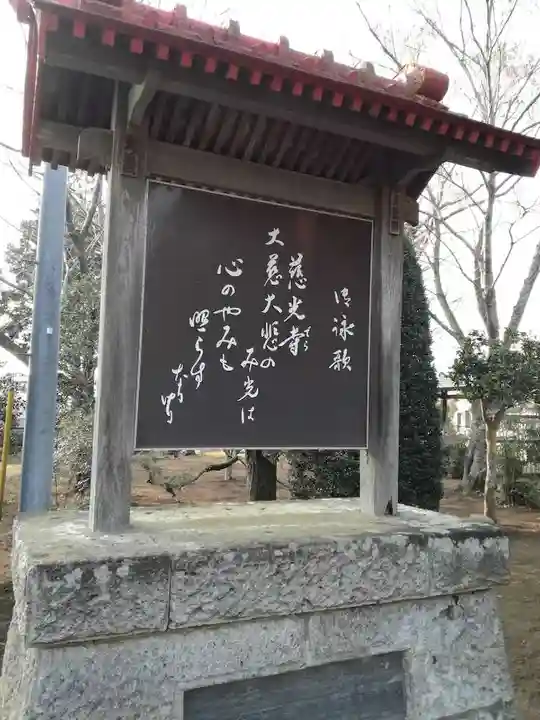 御詠歌
慈光寺
大慈大悲の
み光は
心のやみも
照らす
なり